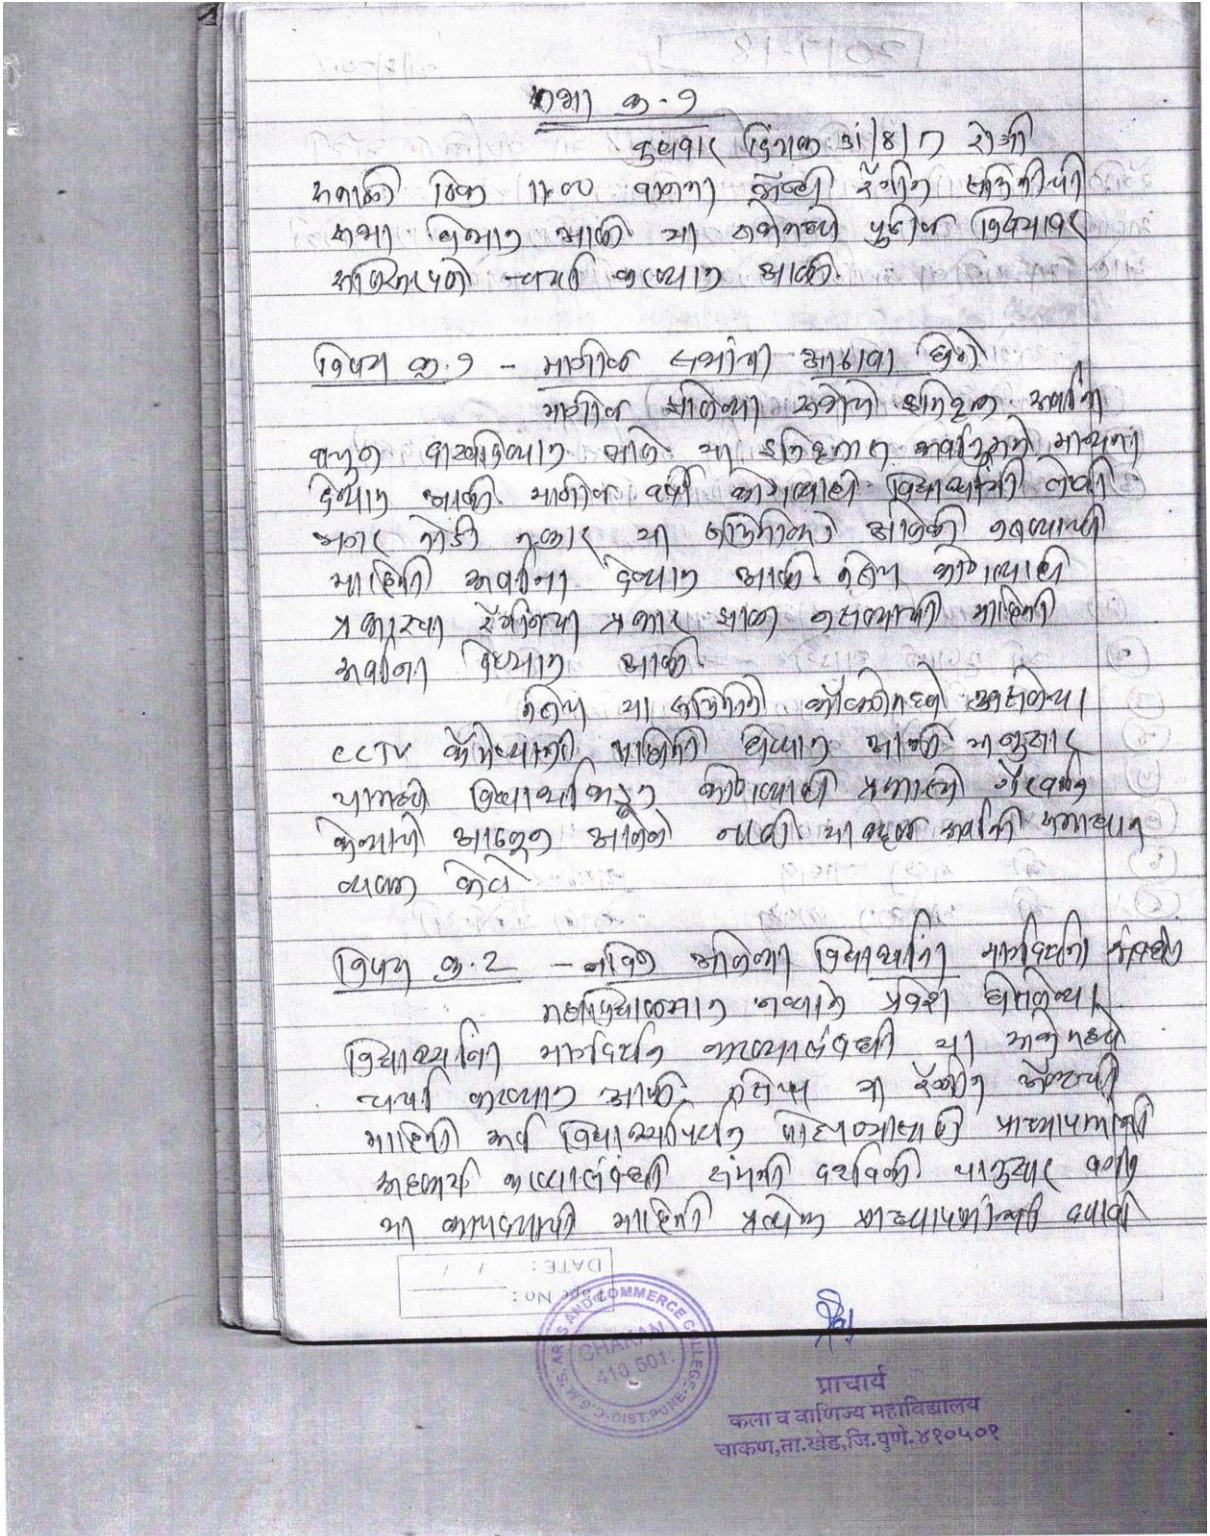 सभा क्र. १
बुधवार दिनांक रोजी
सकाळी ठिक वाजता अँन्टी रॅगींग समितीची
सभा घेण्यात आली या सभेमध्ये पुढील विषयावर
सविस्तरपणे चर्चा करण्यात आली.
विषय क्र. १ - मागील सभांचा आढावा घेणे
मागील झालेल्या सभेचे इतिवृत्त सर्वांना
वाचून दाखविण्यात आले या इतिवृत्तास सर्वानुमते मान्यता
देण्यात आली. मागील वर्षी कोणत्याही विद्यार्थ्यांची लेखी
अगर तोंडी तक्रार या समितीकडे आलेली नसल्याची
माहिती सर्वांना देण्यात आली. तसेच कोणत्याही
प्रकारचा रॅगींगचा प्रकार झाला नसल्याची माहिती
सर्वांना देण्यात आली.
तसेच या समितीने कॉलेजमध्ये असलेल्या
CCTV कॅमेऱ्याची माहिती घेण्यात आली यानुसार
यामध्ये विद्यार्थ्यांकडून कोणत्याही प्रकारचे गैरवर्तन
केल्याचे आढळून आलेले नाही याबद्दल सर्वांनी समाधान
व्यक्त केले
विषय क्र. 2 - नविन आलेल्या विद्यार्थ्यांना मार्गदर्शन संबंधी
महाविद्यालयात नव्याने प्रवेश घेतलेल्या
विद्यार्थ्यांना मार्गदर्शन करण्यासंबंधी या सभेमध्ये
चर्चा करण्यात आली. तसेच या रॅगींग
माहिती सर्व विद्यार्थ्यांपर्यंत पोहचण्यासाठी प्राध्यापकांनी
सहकार्य करण्यासंबंधी संमती दर्शविली यानुसार वर्गात
या कायद्याची माहिती प्रत्येक प्राध्यापकांनी द्यावी
DATE: / /
Page No:
ARTS AND COMMERCE COLLEGE
CHAKAN
410 501.
DIST.PUNE
प्राचार्य
कला व वाणिज्य महाविद्यालय
चाकण,ता.खेड,जि.पुणे.४१०५०१